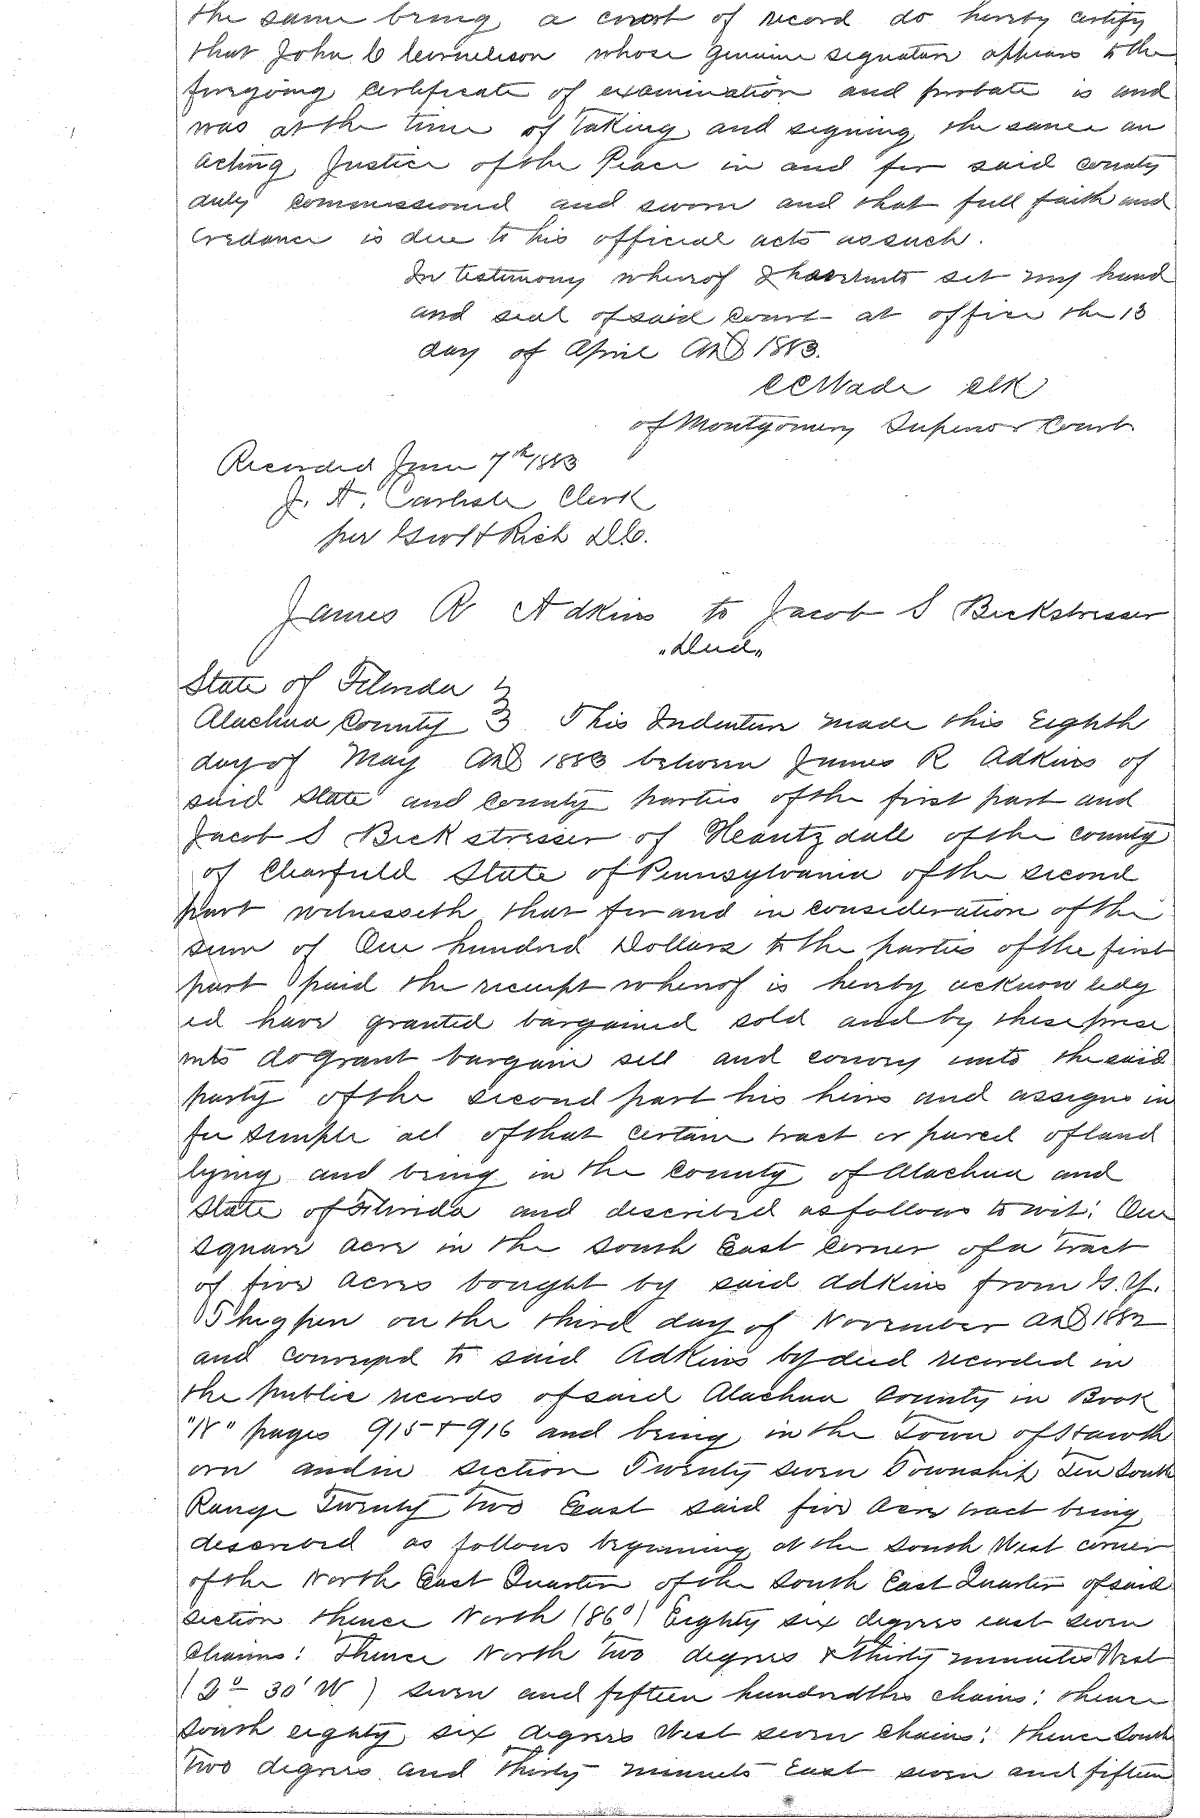 the same being a court of record do hereby certify
that John C Cornelison whose genuine signature appears to the
foregoing certificate of examination and probate is and
was at the time of taking and signing the same an
acting Justice of the Peace in and for said county
duly commissioned and sworn and that full faith and
Credance is due to his official acts as such.
In testimony whereof I have hereunto set my hand
and seal of said court at office the 13
day of April AD 1883.
C C Wade Clk
of Montgomery Superior Court
Recorded June 7th 1883
J. A. Carlisle Clerk
per Geo H Rich D.C.
James R Adkins to Jacob S Beckstresser
"Deed"
State of Florida }
Alachua County } This Indenture made this Eighth
day of May AD 1883 between James R Adkins of
said State and County parties of the first part and
Jacob S Beckstresser of Heautzdall of the county
of Clearfield State of Pennsylvania of the second
part witnesseth that for and in consideration of the
sum of One hundred Dollars to the parties of the first
part paid the receipt whereof is hereby acknowledg
ed have granted bargained sold and by these prese
nts do grant bargain sell and convey unto the said
party of the second part his heirs and assigns in
fee simple all of that certain tract or parcel of land
lying and being in the County of Alachua and
State of Florida and described as follows to wit: One
square acre in the South East Corner of a tract
of five acres bought by said Adkins from G. Y.
Thigpen on the third day of November AD 1882
and conveyed to said Adkins by deed recorded in
the public records of said Alachua County in Book
"N" pages 915 + 916 and being in the Town of Hawth
orn and in section Twenty seven Township Ten South
Range Twenty Two East said five acre tract being
described as follows beginning at the South West corner
of the North East Quarter of the South East Quarter of said
section thence North (86°) Eighty six degrees east seven
Chains: Thence North Two degrees & thirty minutes West
(2° 30' W) seven and fifteen hundredths chains: thence
South eighty six degrees West seven chains: thence South
Two degrees and thirty minuets East seven and fifteen